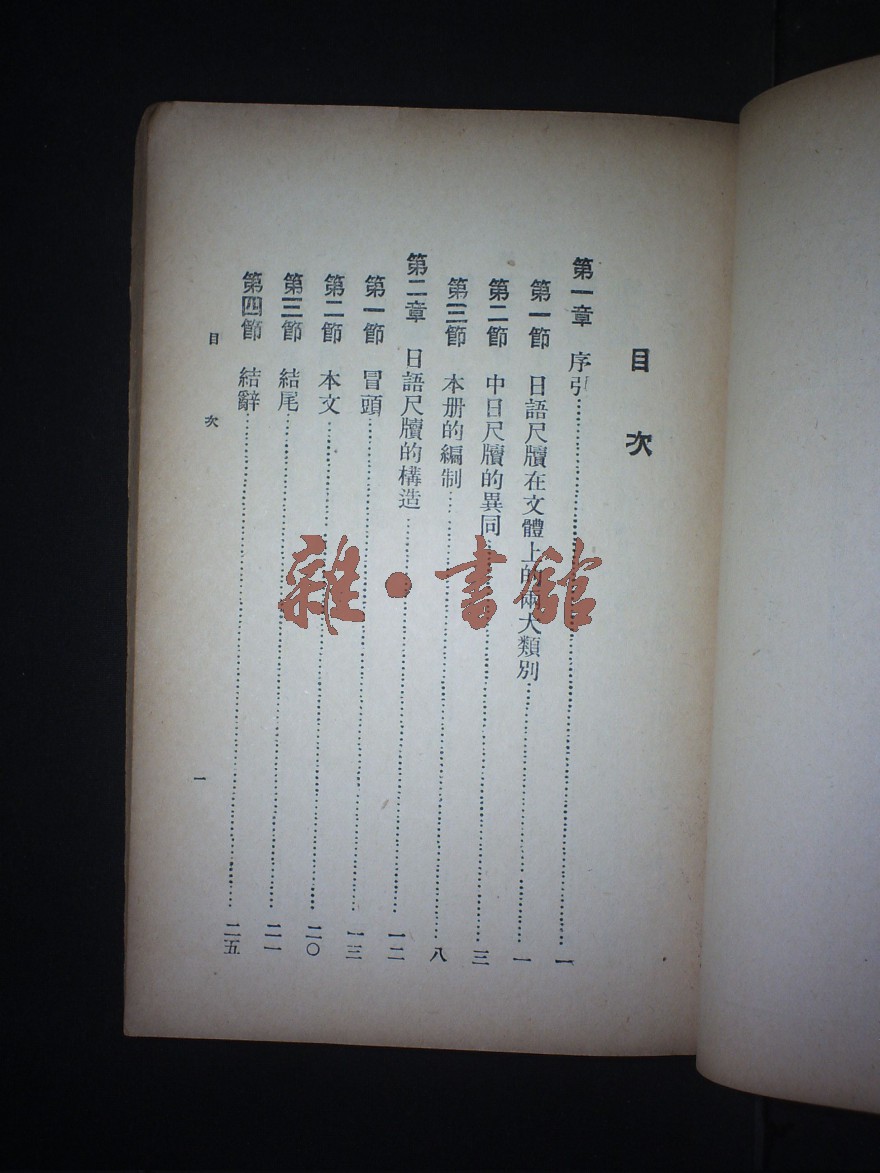 目次
第一章 序引……一
第一節 日語尺牘在文體上的兩大類別……一
第二節 中日尺牘的異同……三
第三節 本册的編制……八
第二章 日語尺牘的構造……一二
第一節 冒頭……一三
第二節 本文……二〇
第三節 結尾……二一
第四節 結辭……二五
目次
一
雜·書館